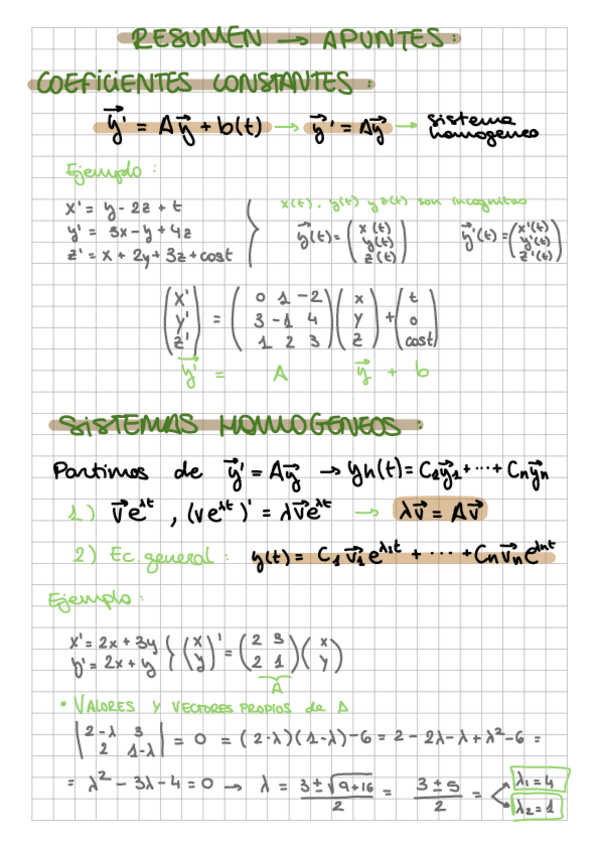 RESUMEN → APUNTES:
COEFICIENTES CONSTANTES:
y⃗' = Ay⃗ + b(t) → y⃗' = Ay⃗ → sistema homogeneo
Ejemplo:
x' = y - 2z + t
y' = 3x - y + 4z
z' = x + 2y + 3z + cost
x(t), y(t) y z(t) son incognitas
y⃗(t) = (x(t) y(t) z(t)) y⃗'(t) = (x'(t) y'(t) z'(t))
(x') = (0 1 -2) (x) + (t)
(y') = (3 -1 4) (y) + (0)
(z') = (1 2 3) (z) + (cost)
y⃗' = A y⃗ + b
SISTEMAS HOMOGENEOS:
Partimos de y⃗' = Ay⃗ → yh(t) = C1y⃗1 + ... + Cny⃗n
1) v⃗e^λt, (ve^λt)' = λv⃗e^λt → λv⃗ = Av⃗
2) Ec. general: y(t) = C1v⃗1e^λ1t + ... + Cnv⃗ne^λnt
Ejemplo:
x' = 2x + 3y } (x)' = (2 3) (x)
y' = 2x + y } (y) = (2 1) (y)
A
• VALORES Y VECTORES PROPIOS de A
|2-λ 3|
|2 1-λ| = 0 = (2-λ)(1-λ) - 6 = 2 - 2λ - λ + λ² - 6 =
= λ² - 3λ - 4 = 0 → λ = (3 ± √9+16)/2 = (3 ± 5)/2 = < λ1 = 4
λ2 = 1